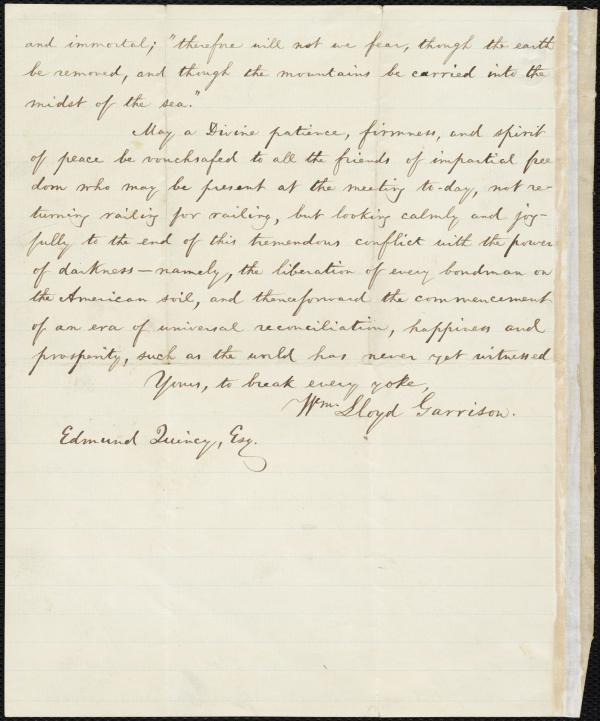 and immortal; "therefore will not we fear, though the earth
be removed, and though the mountains be carried into the
midst of the sea."
May a Divine patience, firmness, and spirit
of peace be vouchsafed to all the friends of impartial free
dom who may be present at the meeting to-day, not re-
turning railing for railing, but looking calmly and joy-
fully to the end of this tremendous conflict with the power
of darkness—namely, the liberation of every bondman on
the American soil, and thenceforward the commencement
of an era of universal reconciliation, happiness and
prosperity, such as the world has never yet witnessed
Yours, to break every yoke,
Wm. Lloyd Garrison.
Edmund Quincy, Esq.